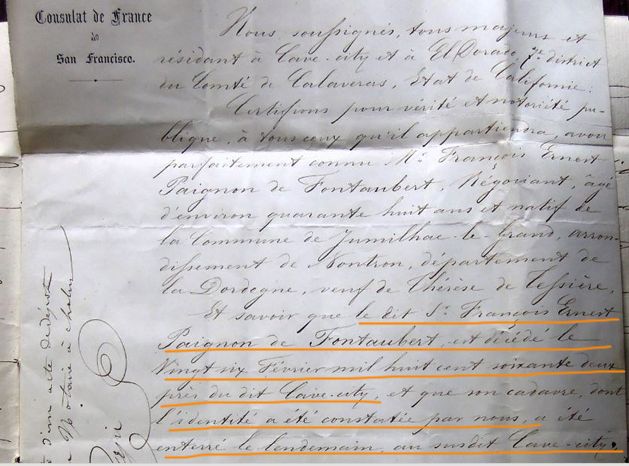 Consulat de France
à
San Francisco.
Nous soussignés, tous majeurs et
résidant à Cave-city et à El Dorado, 7e district
du Comté de Calaveras, Etat de Californie:
Certifions pour vérité et notoriété pu-
blique, à tous ceux qu'il appartiendra, avoir
parfaitement connu Mr. François Ernest
Paignon de Fontaubert, Négociant, âgé
d'environ quarante huit ans et natif de
la Commune de Jumilhac-le Grand, arron-
dissement de Nontron, département de
la Dordogne, veuf de Thérèse de Tessière.
Et savoir que le dit Sr. François Ernest
Paignon de Fontaubert, est décédé le
Vingt six Février mil huit cent soixante deux
près du dit Cave-city, et que son cadavre, dont
l'identité a été constatée par nous, a été
enterré le lendemain, au susdit Cave-city,
d'un acte de dépôt
Notaire à